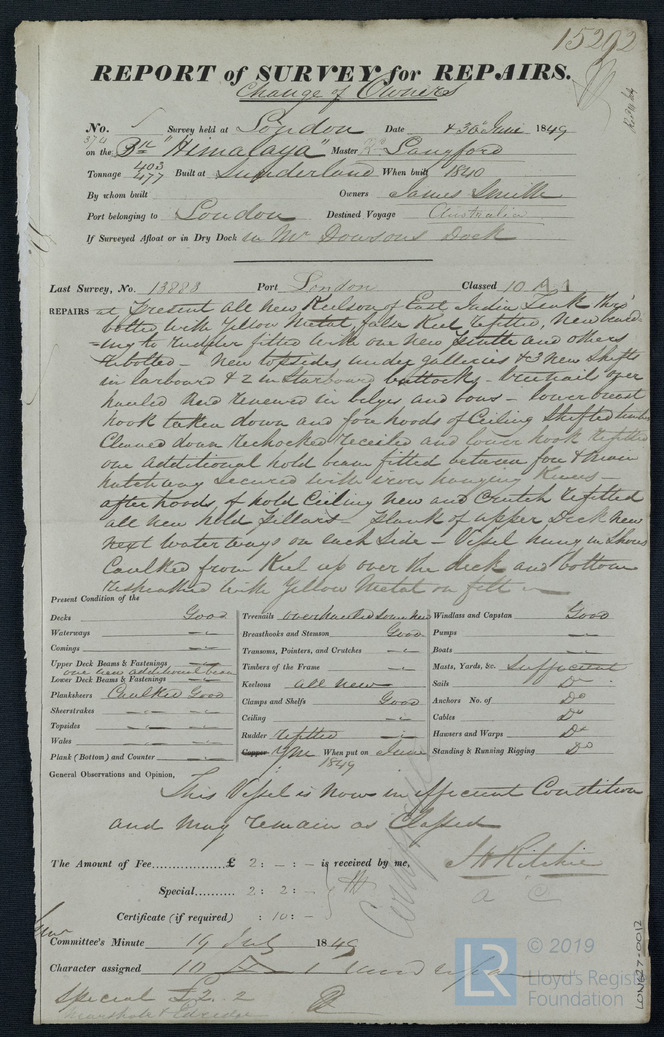 15292
REPORT of SURVEY for REPAIRS.
Change of Owners
No. Survey held at London Date 30 June 1849
374
on the Bk "Himalaya" Master Langford
Tonnage 403 477 Built at Sunderland When built 1840
By whom built Owners James Smith
Port belonging to London Destined Voyage Australia
If Surveyed Afloat or in Dry Dock in Mr Dowsons Dock
Last Survey, No. 13888 Port London Classed 10 A 1
REPAIRS at Present all new Keelson of East India Teak thro'
bolted with Yellow Metal false Keel refitted, New
to Rudder fitted with one new Pintle and others
rebolted - New topsides under galleries & 3 new Shifts
in larboard & 2 in Starboard buttocks - treenails over
hauled and renewed in bilges and bows - lower breast
hook taken down and fore hoods of Ceiling Shifted timbers
Cleaned down rechocked receiled and lower hook refitted
one additional hold beam fitted between fore & main
hatchway secured with iron hanging Knees -
after hoods of hold Ceiling new and Crutch refitted
all new hold Pillars - Plank of upper Deck new
next waterways on each side - Vessel hung in Shores
Caulked from Keel up over the deck and bottom
resheathed with Yellow Metal on felt
Present Condition of the
Decks Good
Waterways
Comings
Upper Deck Beams & Fastenings
one new additional beam
Lower Deck Beams & Fastenings
Planksheers Caulked Good
Sheerstrakes
Topsides
Wales
Plank (Bottom) and Counter
Treenails overhauled some new
Breasthooks and Stemson Good
Transoms, Pointers, and Crutches
Timbers of the Frame
Keelsons all new
Clamps and Shelfs Good
Ceiling
Rudder refitted
Copper YM When put on June
1849
Windlass and Capstan Good
Pumps
Boats
Masts, Yards, &c. Sufficient
Sails Do
Anchors No. of Do
Cables Do
Hawsers and Warps Do
Standing & Running Rigging Do
General Observations and Opinion,
This Vessel is now in efficient Condition
and may remain as Classed
The Amount of Fee £ 2: - : - is received by me,
J H Ritchie
Special 2: 2: -
Certificate (if required) : 10: -
Committee's Minute 19 July 1849
Character assigned 10 A 1
special £2. 2
Marshall & Edridge
© 2019
LR Lloyd's Register
Foundation
LON627-0012